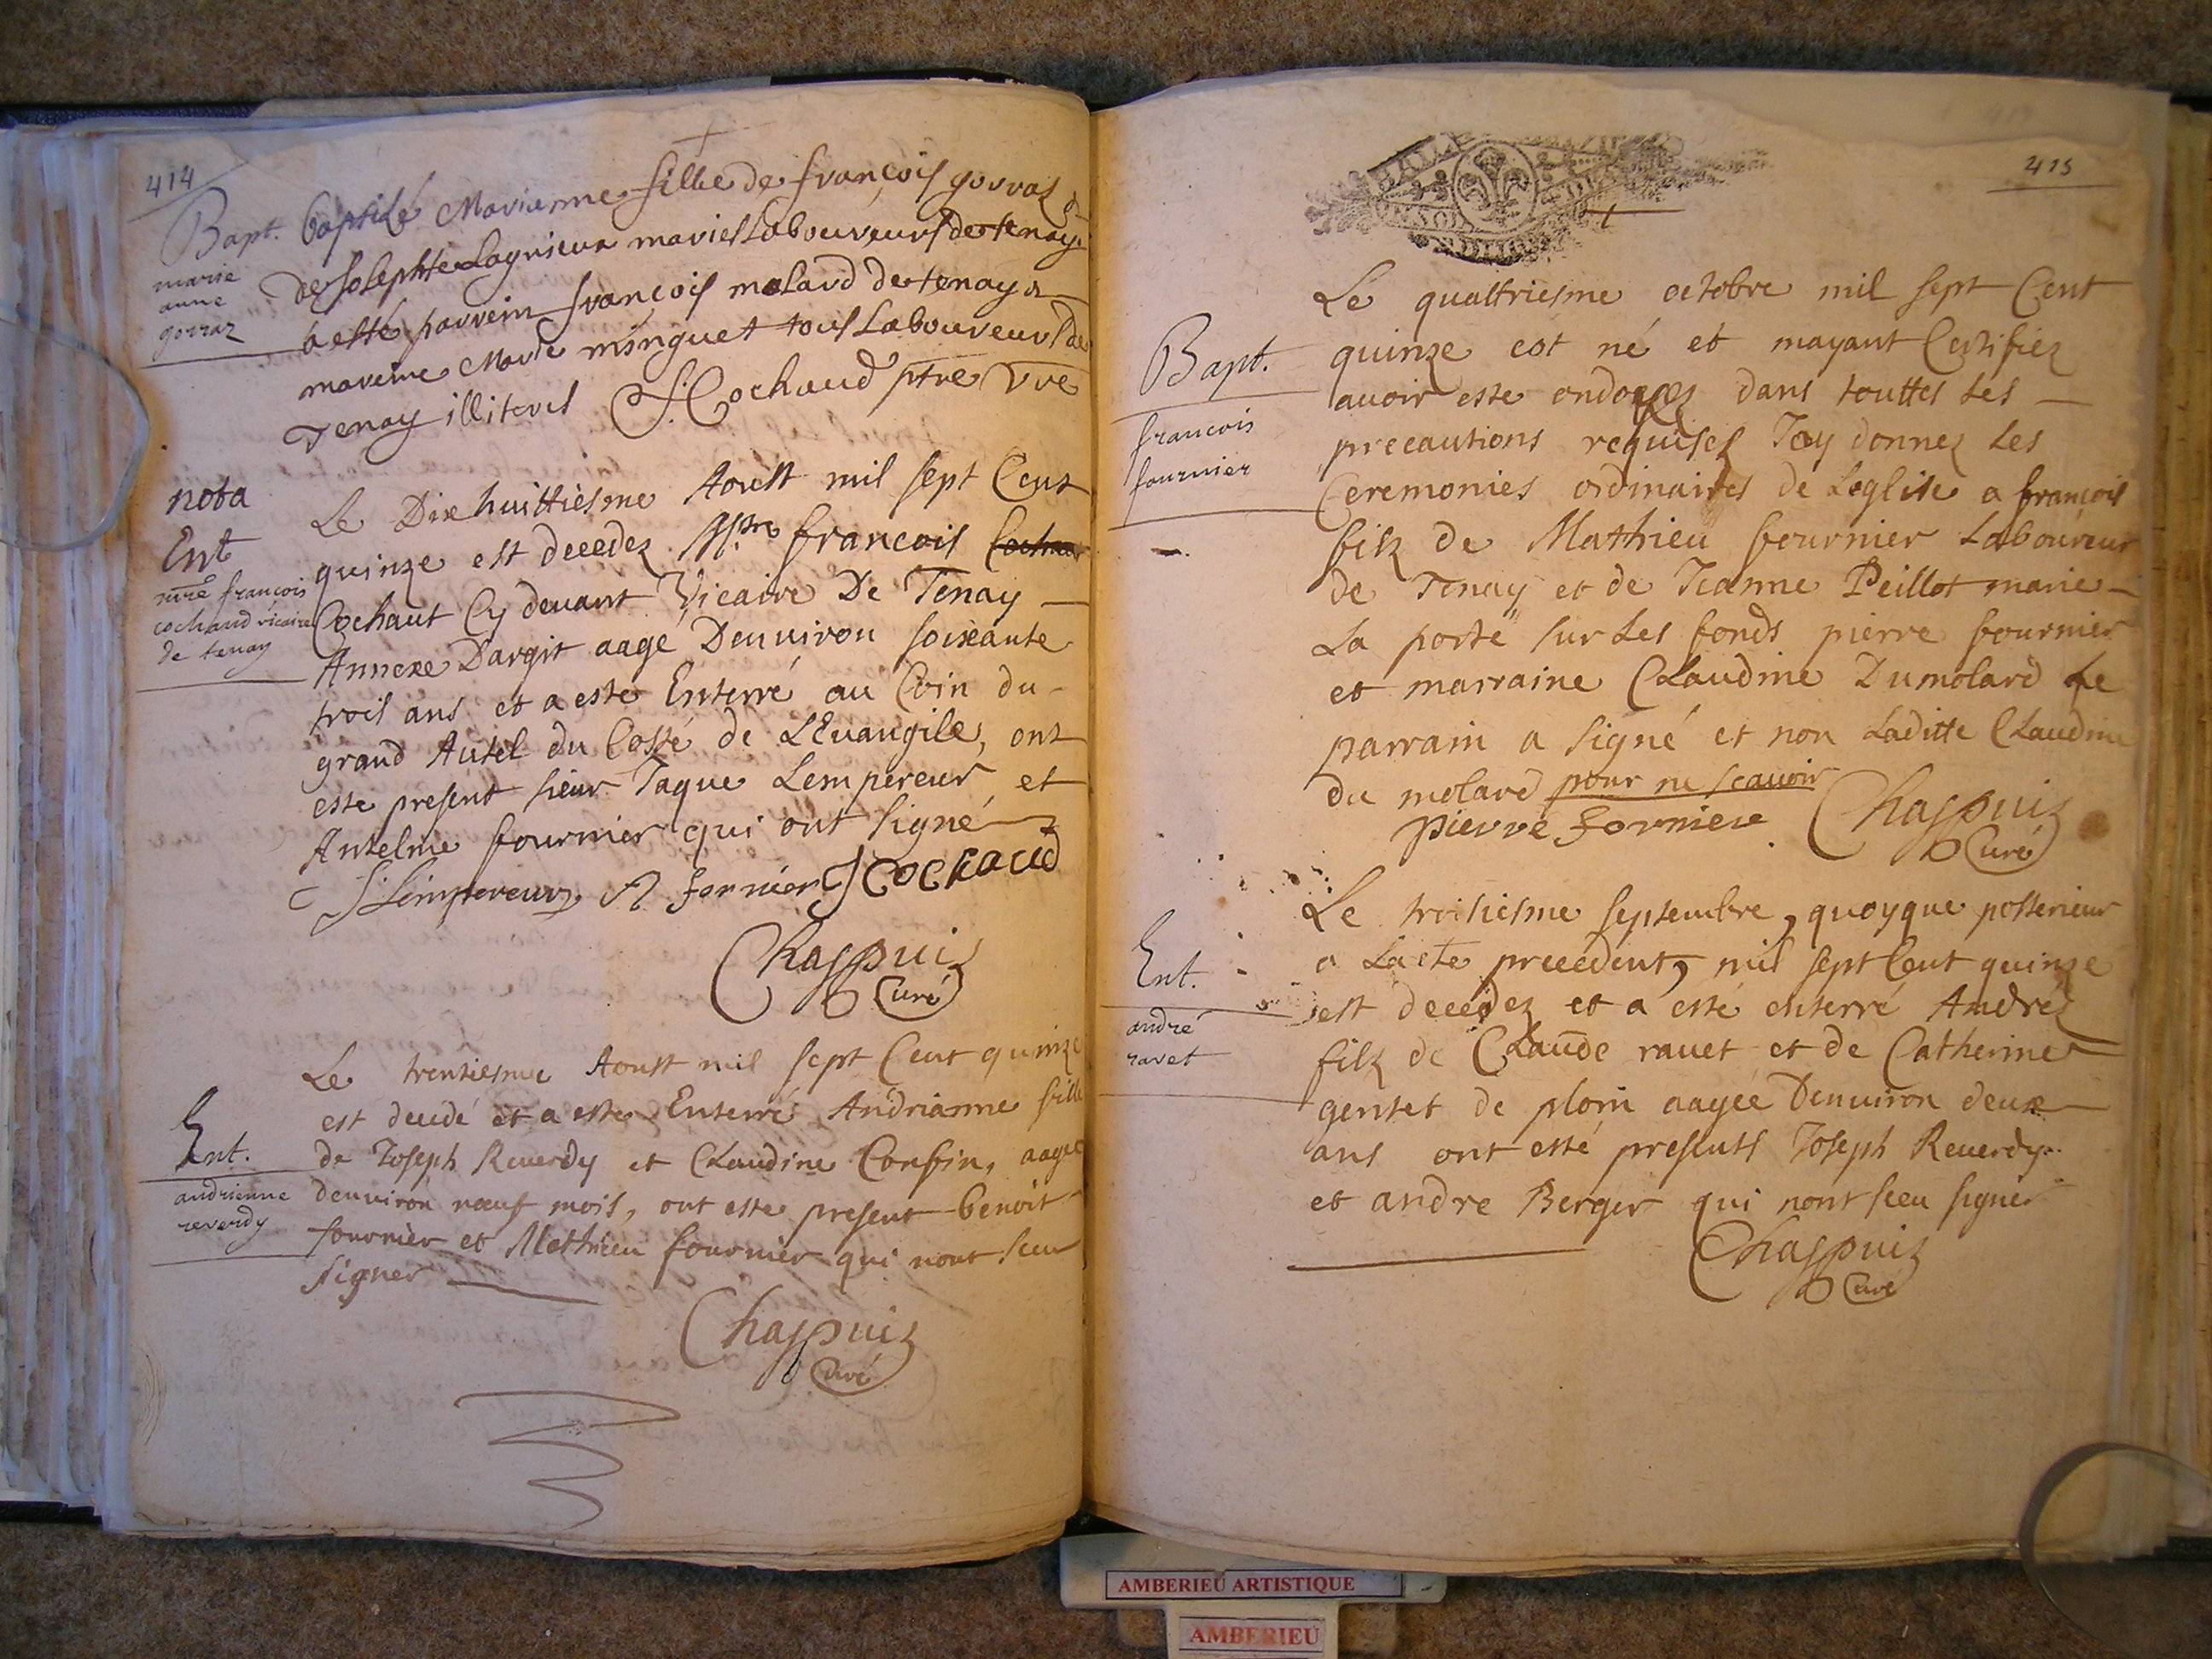 414
Bapt.
marie
anne
gorraz
baptisé Marianne fille de françois gorraz &
de Josephte Lagrieux mariés Laboureurs de tenay.
a esté parrein françois molard de tenay &
mareine Marie minguet tous Laboureurs de
Tenay illiterés J. Cochaud ptre Vre
nota
Ent
mre françois
cochaud vicaire
de tenay
Le Dixhuittiesme Aoust mil sept Cent
quinze est decedez Mre francois
Cochaut Cy devant Vicaire De Tenay
Annexe Dargit aagé Denuiron soixante
trois ans et a esté Enterré au Coin du
grand Autel du Costé de LEuangile, ont
esté present sieur Jaque Lempereur et
Antelme fournier qui ont signé
J Lempereur A fornier J COCHAUD
Chappuiz
Curé
Ent.
andrienne
reverdy
Le trentiesme Aoust mil sept Cent quinze
est decedé et a este Enterré Andrianne fille
de Joseph Reuerdy et Claudine Confin, aagee
denuiron nœuf mois, ont este present benoit
fournier et Mathieu fournier qui nont sceu
signer
Chappuiz
Curé
415
Bapt.
francois
fournier
Le quattriesme octobre mil sept Cent
quinze est né et mayant Certifiez
auoir este ondoyez dans touttes les
precautions requises Jay donnez les
Ceremonies ordinaires de Leglise a françois
filz de Mathieu fournier Laboureur
de Tenay et de Jeanne Peillot marie
La porté sur Les fonds pierre fournier
et marraine Claudine Dumolard le
parrain a signé et non Laditte Claudine
du molard pour ne scauoir
pierre forniere Chappuiz
Curé
Ent.
andré
ravet
Le troisiesme septembre, quoyque posterieur
a Lacte precedent, mil sept Cent quinze
est decedez et a esté enterré André
filz de Claude rauet et de Catherine
gentet de plom aagée Denuiron deux
ans ont esté presents Joseph Reuerdy
et andre Berger qui nont sceu signer
Chappuiz
Curé
AMBERIEU ARTISTIQUE
AMBERIEU